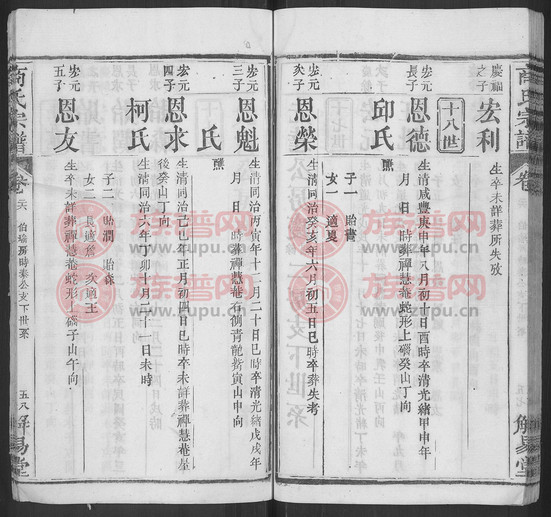 商氏宗譜
卷
五七
解易堂
慶福之子
宏利
生卒未詳葬所失攷
十八世
宏元長子
恩德
生清咸豐庚申年八月初十日酉時卒清光緒甲申年
月 日 時葬禪慧菴蛇形上磜癸山丁向
邱氏
鹽
子一 貽書
女一 適吳
宏元次子
恩榮
生清同治癸亥年六月初五日巳時卒葬失考
宏元三子
恩魁
生清同治丙寅年十二月二十日巳時卒清光緒戊戌年
月 日 時葬禪慧菴右側青龍嘴寅山申向
氏
鹽
宏元四子
恩求
生清同治己巳年正月初四日巳時卒未詳葬禪慧菴屋
後癸山丁向
柯氏
生清同治六年丁卯十月二十一日未時
子二 貽潤 貽森
女二 長適詹 次適王
宏元五子
恩友
生卒未詳葬禪慧菴蛇形上磜子山午向
商氏宗譜
卷
五八
解易堂
族譜网
www.zupu.cn
族譜网
www.zupu.cn